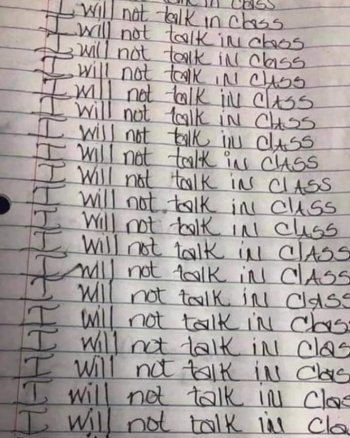 talk in class
I will not talk in class
I will not talk in class
I will not talk in class
I will not talk iN CLASS
I will not talk iN CLASS
I will not talk iN CLASS
I will not talk iN CLASS
I will not talk iN CLASS
I will not talk iN CLASS
I will not talk iN CLASS
I will not talk iN CLASS
I will not talk iN CLASS
I will not talk iN CLASS
I will not talk iN Class
I will not talk iN Clas
I will not talk iN Clas
I will not talk iN Clas
I will not talk iN Clas
I will not talk iN Cla